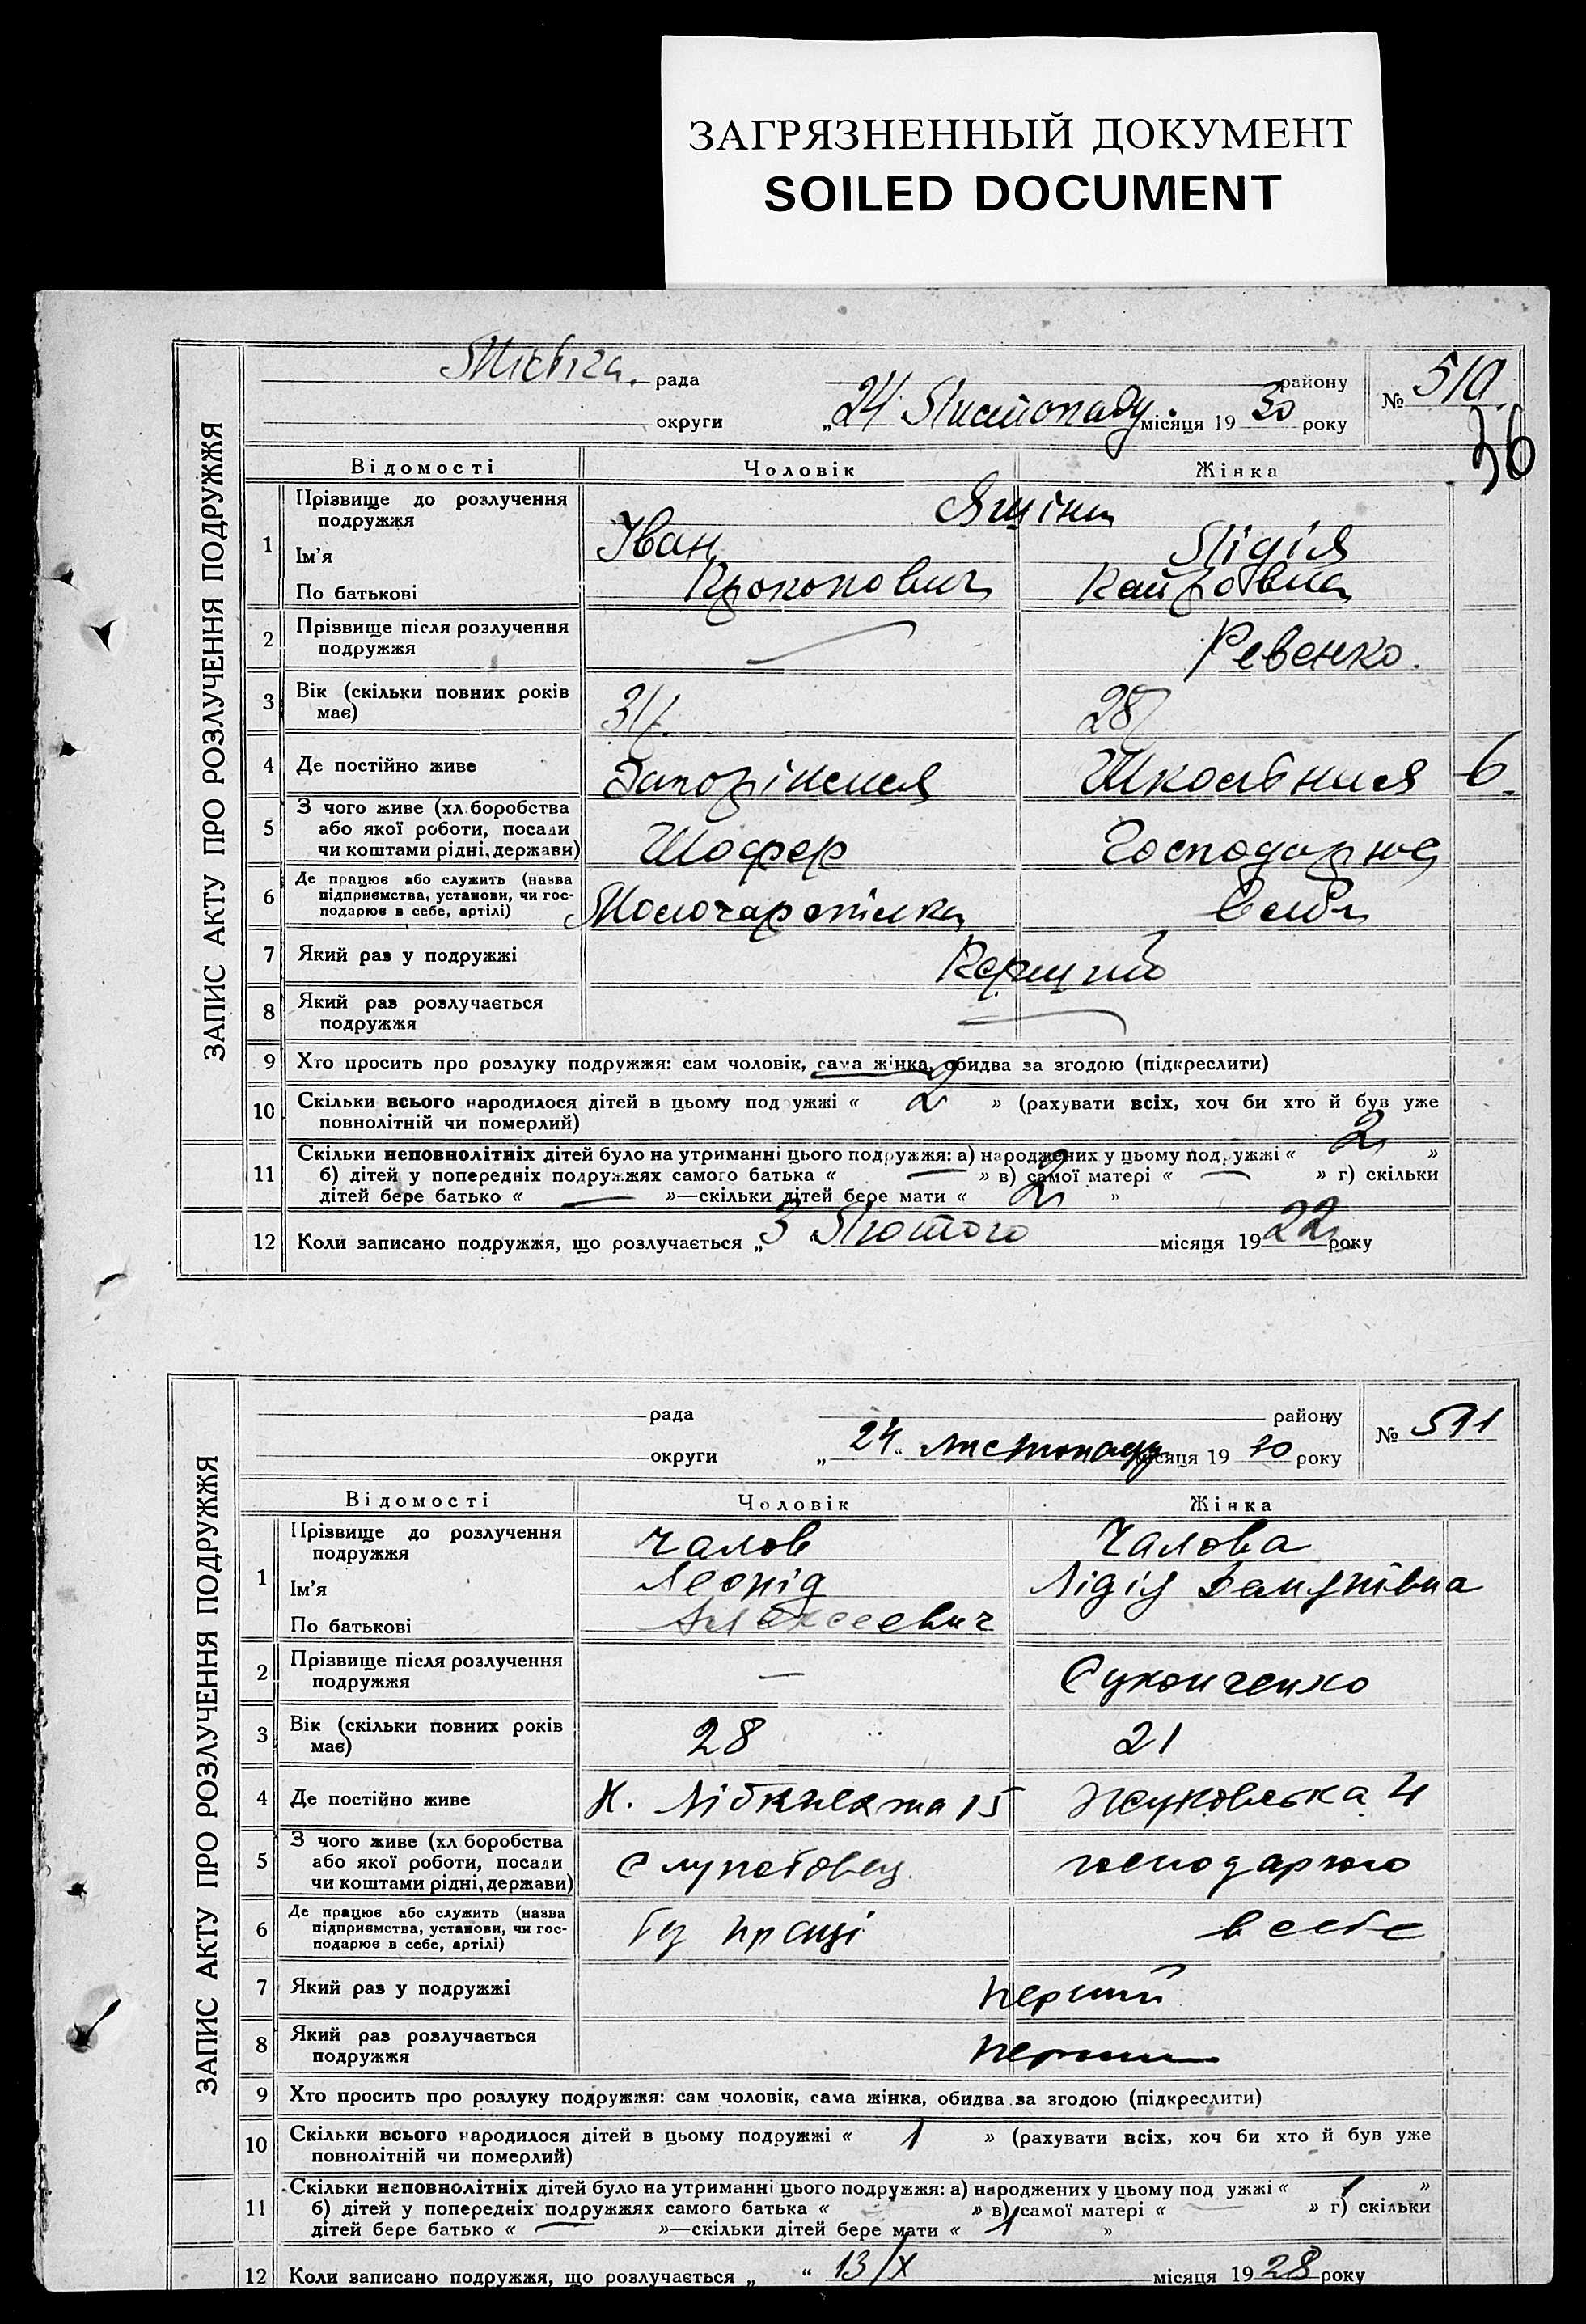 ЗАГРЯЗНЕННЫЙ ДОКУМЕНТ
SOILED DOCUMENT
ЗАПИС АКТУ ПРО РОЗЛУЧЕННЯ ПОДРУЖЖЯ
рада району № 510
округи „24 Листопаду місяця 1930 року
36
Відомості Чоловік Жінка
1 Прізвище до розлучення подружжя
Ім'я Іван Лідія
По батькові Прокопович
2 Прізвище після розлучення подружжя — Ревенко.
3 Вік (скільки повних років має) 31 28
4 Де постійно живе 6.
5 З чого живе (хліборобства або якої роботи, посади чи коштами рідні, держави) Шофер Господарює
6 Де працює або служить (назва підприємства, установи, чи господарює в себе, артілі)
7 Який раз у подружжі Перший
8 Який раз розлучається подружжя —
9 Хто просить про розлуку подружжя: сам чоловік, сама жінка, обидва за згодою (підкреслити)
10 Скільки всього народилося дітей в цьому подружжі « 2 » (рахувати всіх, хоч би хто й був уже
повнолітній чи померлий)
11 Скільки неповнолітніх дітей було на утриманні цього подружжя: а) народжених у цьому подружжі « 2 »
б) дітей у попередніх подружжях самого батька « — » в) самої матері « — » г) скільки
дітей бере батько « — »—скільки дітей бере мати « 2 »
12 Коли записано подружжя, що розлучається „3 Лютого місяця 1922 року
ЗАПИС АКТУ ПРО РОЗЛУЧЕННЯ ПОДРУЖЖЯ
рада району № 511
округи „ 24 “ листопаду місяця 1930 року
Відомості Чоловік Жінка
1 Прізвище до розлучення подружжя Чалов Чалова
Ім'я Леонід Лідія
По батькові Алексеевич
2 Прізвище після розлучення подружжя —
3 Вік (скільки повних років має) 28 21
4 Де постійно живе К. Лібкнехта 15 Жуковська 4
5 З чого живе (хліборобства або якої роботи, посади чи коштами рідні, держави) господарюю
6 Де працює або служить (назва підприємства, установи, чи господарює в себе, артілі) без праці в себе
7 Який раз у подружжі перший
8 Який раз розлучається подружжя перший
9 Хто просить про розлуку подружжя: сам чоловік, сама жінка, обидва за згодою (підкреслити)
10 Скільки всього народилося дітей в цьому подружжі « 1 » (рахувати всіх, хоч би хто й був уже
повнолітній чи померлий)
11 Скільки неповнолітніх дітей було на утриманні цього подружжя: а) народжених у цьому подружжі « 1 »
б) дітей у попередніх подружжях самого батька « » в) самої матері « — » г) скільки
дітей бере батько « — »—скільки дітей бере мати « 1 »
12 Коли записано подружжя, що розлучається „ “ 13/X місяця 1928 року